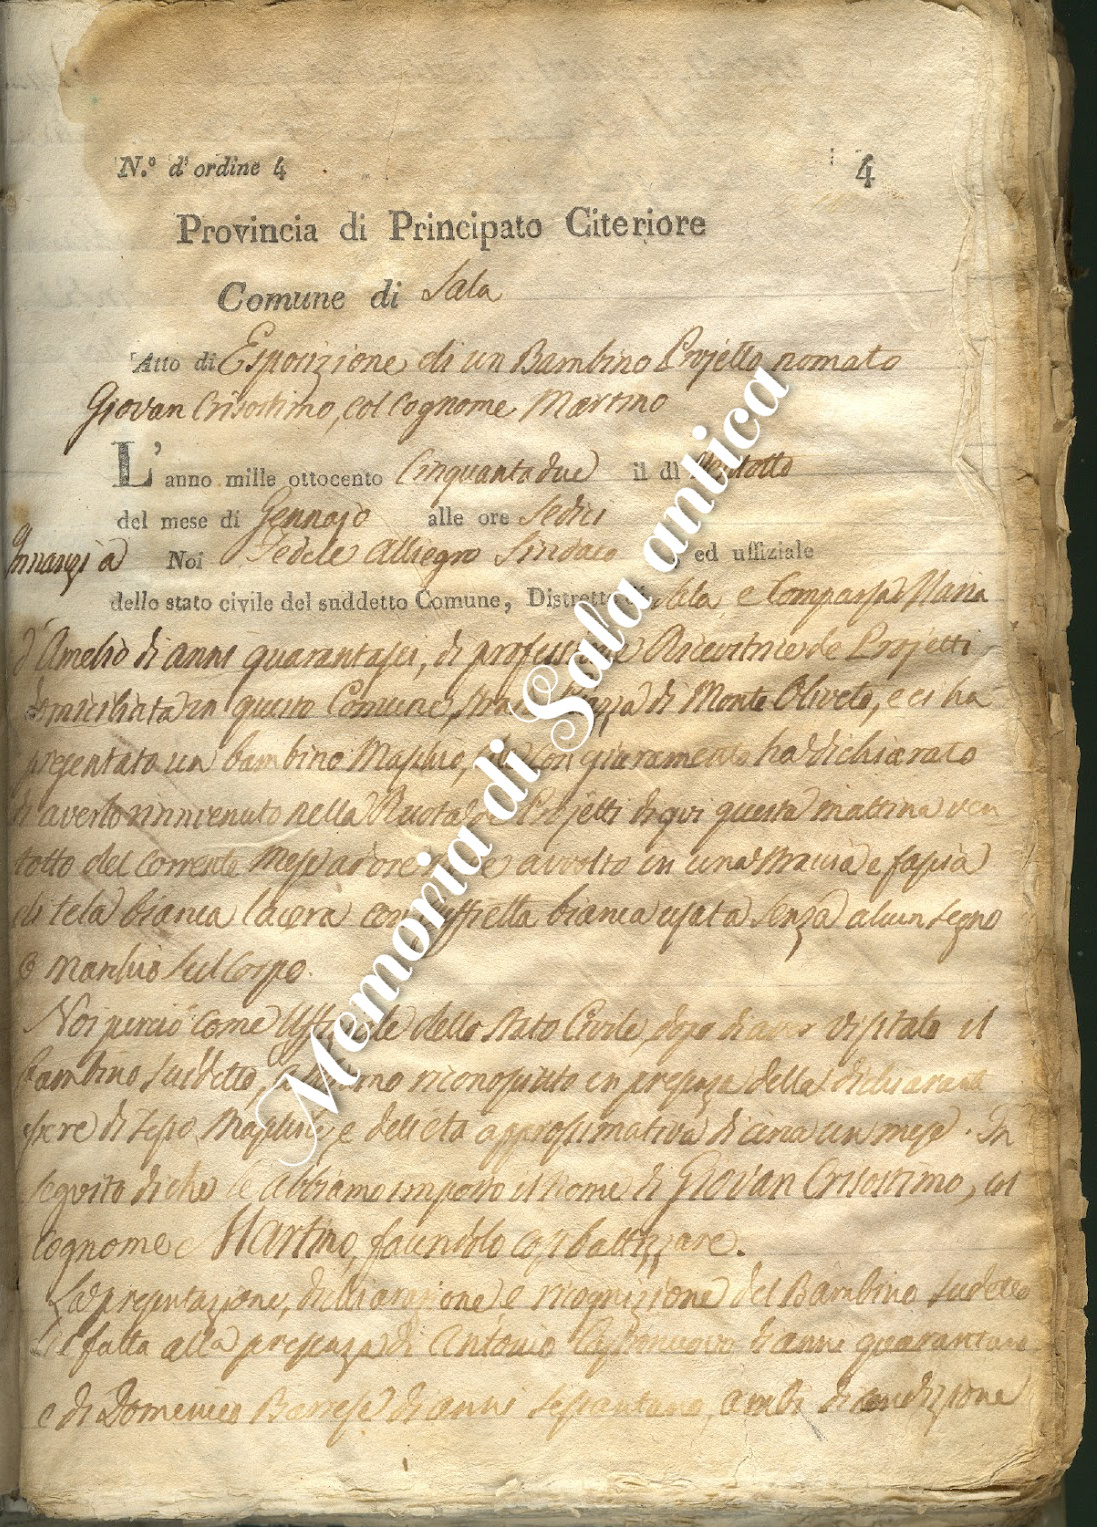 N.º d' ordine 4
4
Provincia di Principato Citeriore
Comune di Sala
Atto di Esposizione di un Bambino Projetto nomato
Giovan Crisostimo, col Cognome Martino
L' anno mille ottocento Cinquanta due il dì Ventotto
del mese di Gennajo alle ore Sedici
Innanzi a Noi Fedele Alliegro Sindaco ed uffiziale
dello stato civile del suddetto Comune, Distretto di Sala, e Comparsa Maria
d'Amelio di anni quarantasei, di professione Ricevitrice de Projetti
domiciliata in questo Comune, strada Piazza di Monte Oliveto, e ci ha
presentato un bambino Maschio, con giuramento ha dichiarato
di averlo rinvenuto nella Ruota de Projetti di qui questa mattina ven
totto del corrente Mese ad ore avvolto in una e fascia
di tela bianca lacera con bianca usata senza alcun segno
o Marchio sul Corpo.
Noi perciò come Uffiziale dello Stato Civile, dopo di aver visitato il
bambino suddetto, abbiamo riconosciuto in presenza della dichiarante
essere di sesso Maschile, e dell'età approssimativa di circa un mese. In
seguito di che le abbiamo imposto il Nome di Giovan Crisostimo, col
Cognome Martino, facendolo così battezzare.
La presentazione, dichiarazione e ricognizione del Bambino suddetto
si è fatta alla presenza di Antonio di anni
e di Domenico Barrese di anni ambi di condizione
Memoria di Sala antica